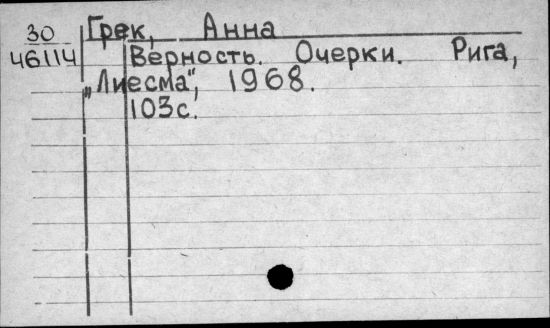 30 Грек, Анна
46114 Верность. Очерки. Рига,
„Лиесма“, 1968.
103с.